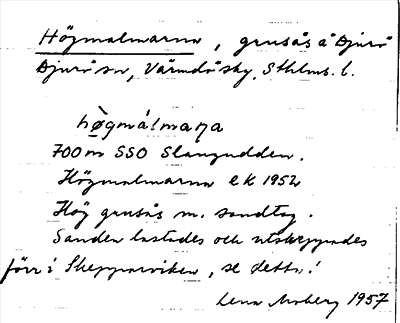 Högmalmarna, grusås å Djurö
Djurö sn, Värmdö skg, Sthlms. l.
hògmálmaɳa
700 m SSO Slangudden.
Högmalmarna ek 1952
Hög grusås m. sandtag.
Sanden lastades och utskeppades
förr i Skepparviken, se detta!
Lena Moberg 1957